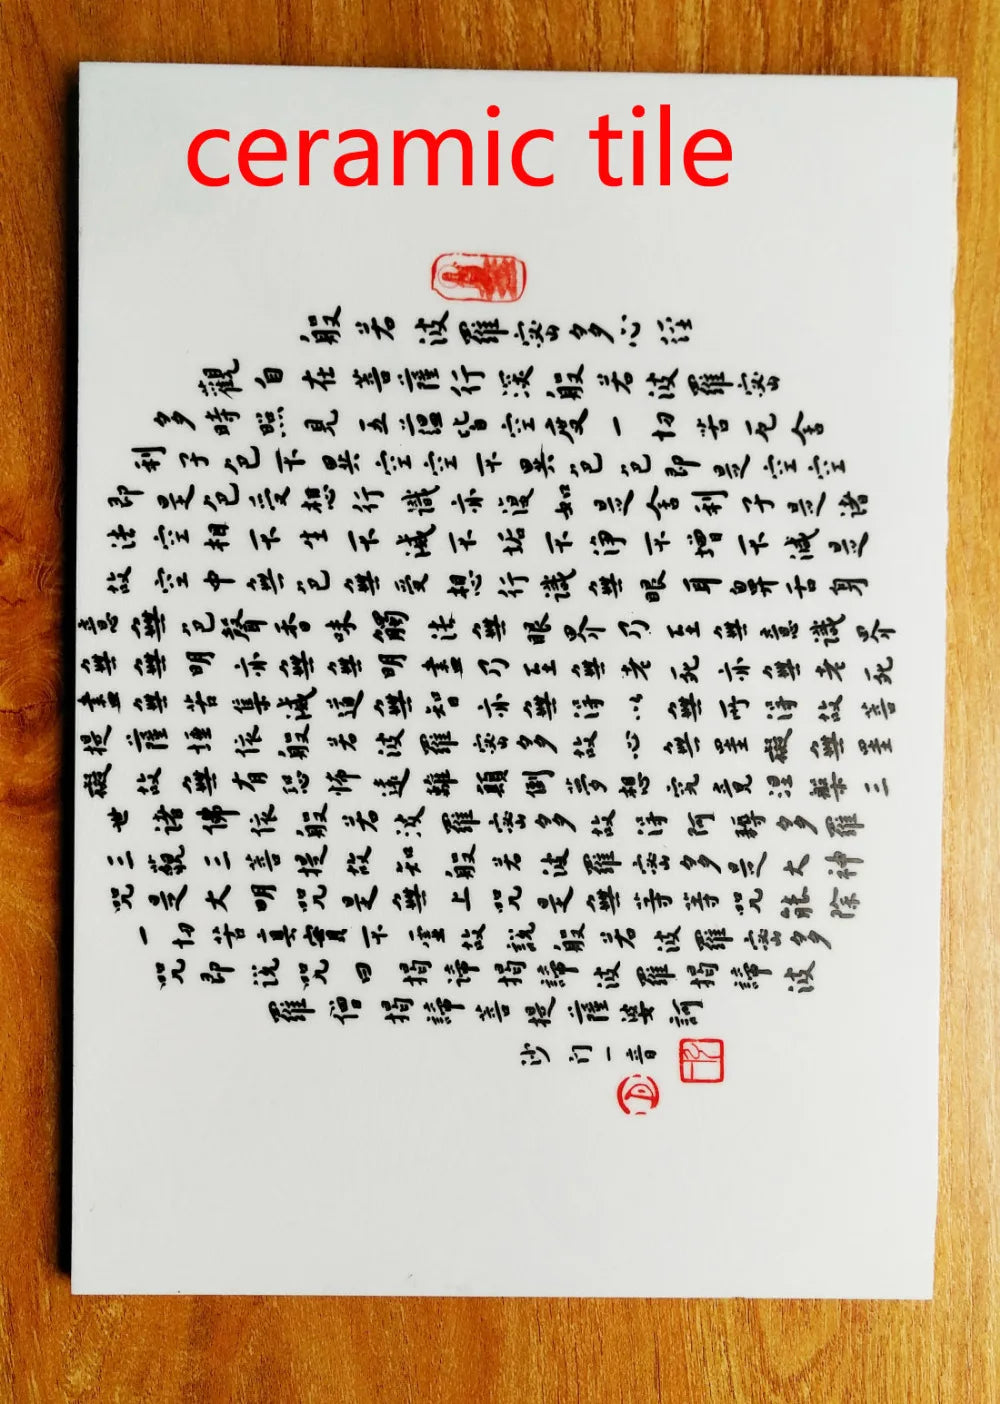 ceramic tile
般若波羅密多心经
觀自在菩薩行深般若波羅密
多時照見五蕴皆空度一切苦厄舍
利子色不異空空不異色色即是空空
即是色受想行識亦復如是舍利子是诸
法空相不生不滅不垢不净不增不减是
故空中無色無受想行識無眼耳鼻舌身
意無色聲香味觸法無眼界乃至無意識界
無無明亦無無明盡乃至無老死亦無老死
盡無苦集滅道無智亦無得以無所得故菩
提薩埵依般若波羅密多故心無罣礙無罣
礙故無有恐怖遠離顛倒夢想究竟涅槃三
世诸佛依般若波羅密多故得阿耨多羅
三藐三菩提故知般若波羅密多是大神
咒是大明咒是無上咒是無等等咒能除
一切苦真實不虛故說般若波羅密多
咒即说咒曰揭谛揭諦波羅揭諦波
羅僧揭諦菩提薩婆訶
沙门一音